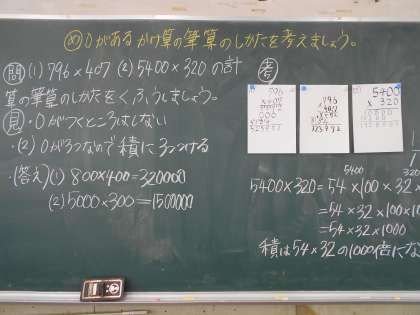 め 0があるかけ算の筆算のしかたを考えましょう。
問 (1) 796×407 (2) 5400×320 の計
算の筆算のしかたをくふうしましょう。
見 ・0がつくところはしない
・(2) 0が3つなので積に3つつける
・(答え) (1) 800×400=320000
(2) 5000×300=1500000
考
5400
×320
5400
5400×320=54×100×32
=54×32×100
=54×32×1000
積は54×32の1000倍にな